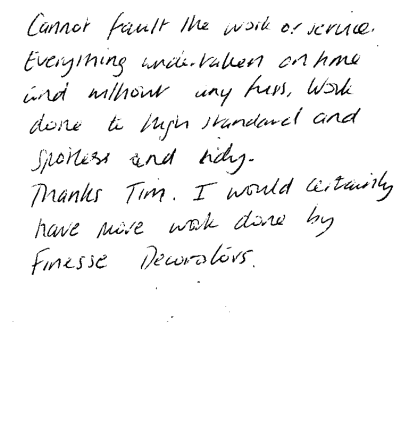 Cannot fault the work or service.
Everything undertaken on time
and without any fuss. Work
done to high standard and
spotless and tidy.
Thanks Tim. I would certainly
have more work done by
Finesse Decorators.